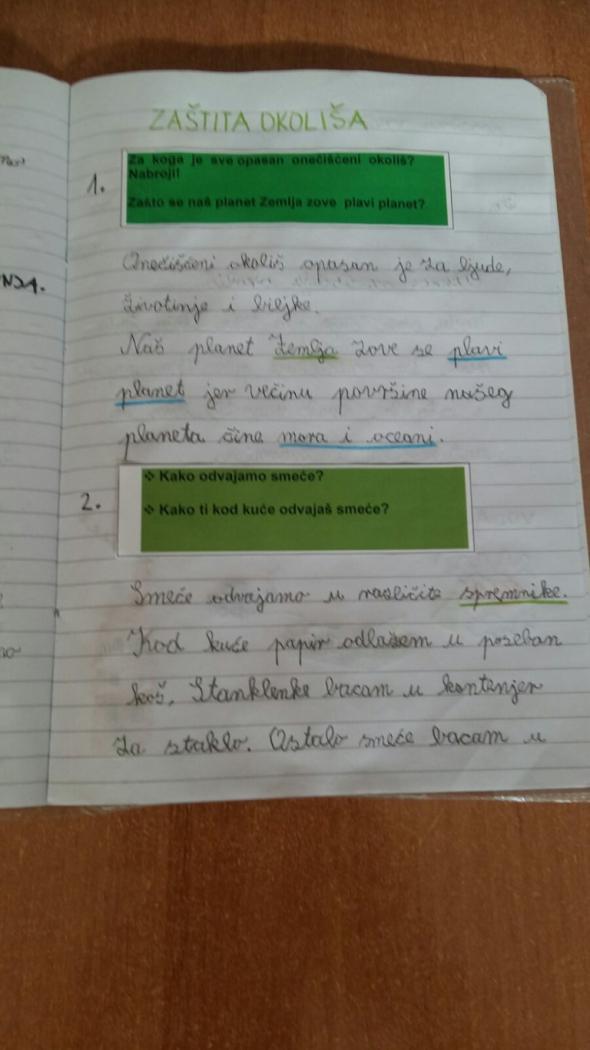 ZAŠTITA OKOLIŠA
1.
Za koga je sve opasan onečišćeni okoliš?
Nabroji!
Zašto se naš planet Zemlja zove plavi planet?
Onečišćeni okoliš opasan je za ljude,
životinje i biljke.
Naš planet Zemlja zove se plavi
planet jer većinu površine našeg
planeta čine mora i oceani.
2.
❖ Kako odvajamo smeće?
❖ Kako ti kod kuće odvajaš smeće?
Smeće odvajamo u različite spremnike.
Kod kuće papir odlažem u poseban
koš. Stanklenke bacam u kontenjer
za staklo. Ostalo smeće bacam u